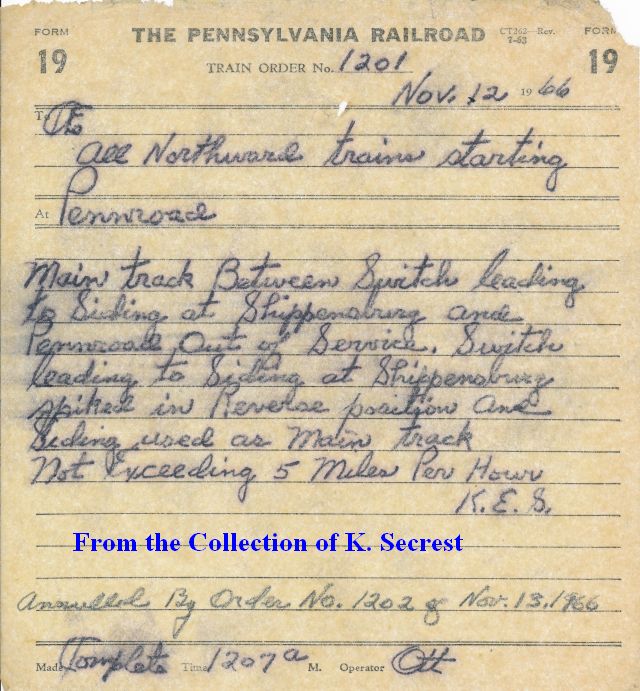 FORM THE PENNSYLVANIA RAILROAD CT262 Rev. FORM
19 7-63 19
TRAIN ORDER No. 1201
Nov. 12 1966
To To
All Northward trains starting
At Pennroad
Main track Between Switch leading
to Siding at Shippensburg and
Pennroad Out of Service. Switch
leading to Siding at Shippensburg
spiked in Reverse position and
Siding used as Main track
Not Exceeding 5 Miles Per Hour
K.E.S.
From the Collection of K. Secrest
Annulled By Order No. 1202 of Nov. 13. 1966
Made Complete Time 1207 a M. Operator Ott